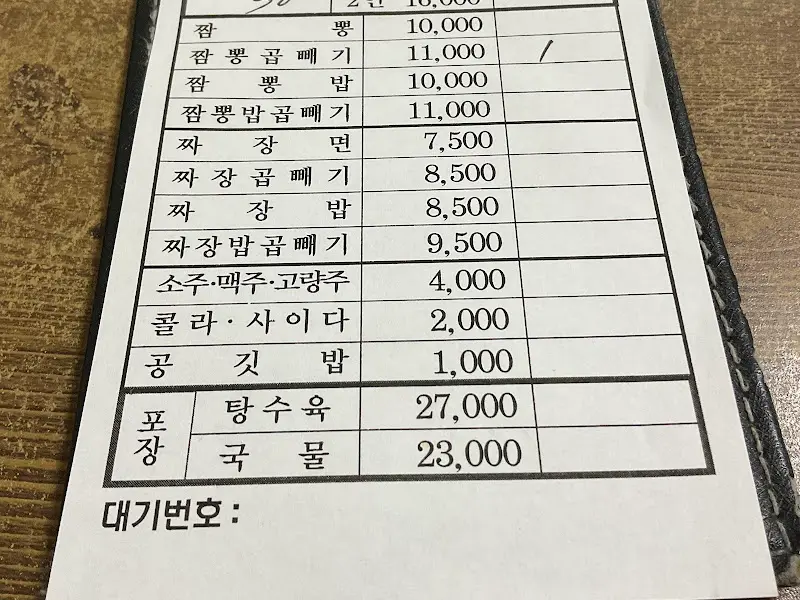 2인 16,000
짬뽕 10,000
짬뽕곱빼기 11,000 /
짬뽕밥 10,000
짬뽕밥곱빼기 11,000
짜장면 7,500
짜장곱빼기 8,500
짜장밥 8,500
짜장밥곱빼기 9,500
소주·맥주·고량주 4,000
콜라·사이다 2,000
공깃밥 1,000
포장 탕수육 27,000
국물 23,000
대기번호 :